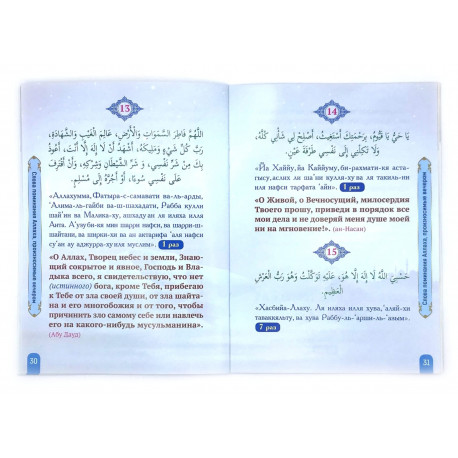 Слова поминания Аллаха, произносимые вечером
13
اللَّهُمَّ فَاطِرَ السَّمَوَاتِ وَالْأَرْضِ، عَالِمَ الْغَيْبِ وَالشَّهَادَةِ،
رَبَّ كُلِّ شَيْءٍ وَمَلِيكَهُ، أَشْهَدُ أَنْ لَا إِلَهَ إِلَّا أَنْتَ، أَعُوذُ
بِكَ مِنْ شَرِّ نَفْسِي، وَشَرِّ الشَّيْطَانِ وَشِرْكِهِ، وَأَنْ أَقْتَرِفَ
عَلَى نَفْسِي سُوءًا، أَوْ أَجُرَّهُ إِلَى مُسْلِمٍ.
«Аллахумма, Фатыра-с-самавати ва-ль-арды,
'Алима-ль-гайби ва-ш-шахадати, Рабба кулли
шай'ин ва Малика-ху, ашхаду ан ля иляха илля
Анта. А'узу би-кя мин шарри нафси, ва шарри-ш-
шайтани, ва ширки-хи ва ан актарифа 'аля нафси
су'ан ау аджурра-ху иля муслим». 1 раз
«О Аллах, Творец небес и земли, Знаю-
щий сокрытое и явное, Господь и Вла-
дыка всего, свидетельствую, что нет
(истинного) бога, кроме Тебя, прибегаю
к Тебе от зла своей души, от зла шайта-
на и его многобожия и от того, чтобы
причинить зло самому себе или навлечь
его на какого-нибудь мусульманина».
(Абу Дауд)
30
14
يَا حَيُّ يَا قَيُّومُ، بِرَحْمَتِكَ أَسْتَغِيثُ، أَصْلِحْ لِي شَأْنِي كُلَّهُ،
وَلَا تَكِلْنِي إِلَى نَفْسِي طَرْفَةَ عَيْنٍ.
«Йа Хаййу, йа Каййуму, би-рахмати-кя аста-
гыcу, аслих ли ша'ни кулля-ху ва ля такиль-ни
иля нафси тарфата 'айн». 1 раз
«О Живой, о Вечносущий, милосердия
Твоего прошу, приведи в порядок все
мои дела и не доверяй меня душе моей
ни на мгновение!». (ан-Насаи)
15
حَسْبِيَ اللَّهُ لَا إِلَهَ إِلَّا هُوَ، عَلَيْهِ تَوَكَّلْتُ وَهُوَ رَبُّ الْعَرْشِ
الْعَظِيمِ.
«Хасбийа-Ллаху. Ля иляха илля хува, 'аляй-хи
таваккяльту, ва хува Раббу-ль-'арши-ль-'азым».
7 раз
Слова поминания Аллаха, произносимые вечером
31